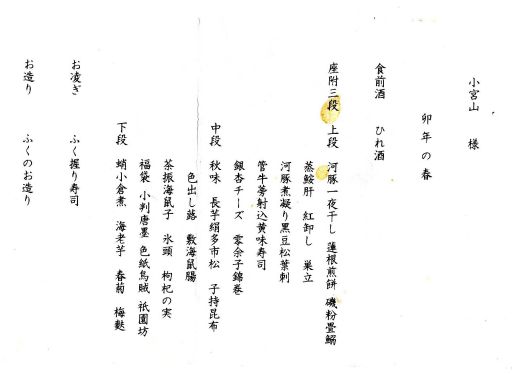 小宮山 様
卯年の春
食前酒 ひれ酒
座附三段 上段 河豚一夜干し 蓮根煎餅 磯粉畳鰯
蒸鮟肝 紅卸し 巣立
河豚煮凝り黒豆松葉刺
管牛蒡射込黄味寿司
銀杏チーズ 零余子錦巻
中段 秋味 長芋絹多市松 子持昆布
色出し蕗 敷海鼠腸
茶振海鼠子 氷頭 枸杞の実
福袋 小判唐墨 色紙烏賊 祇園坊
下段 蛸小倉煮 海老芋 春菊 梅麩
お凌ぎ ふく握り寿司
お造り ふくのお造り